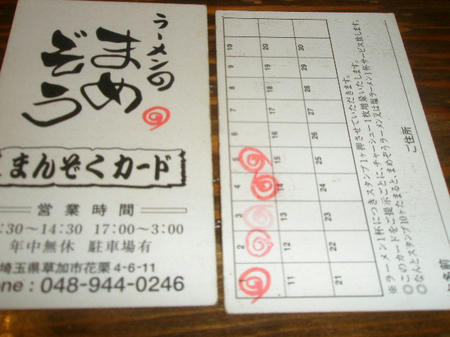 ラーメンの
まめ
ぞう
まんぞくカード
営業時間
:30〜14:30 17:00〜3:00
年中無休 駐車場有
埼玉県草加市花栗4-6-11
one : 048-944-0246
1 2 3 4 5 6 7 8 9 10
11 12 13 14 15 20
21 22 23 24 25
※ラーメン1杯につきスタンプ1ケ押させていただきます。
◎このカードをご提示ごとに、チャーシュー1枚増築いたします。
◎なんとスタンプ10ケたまると、まめぞうラーメン又は塩ラーメン1杯サービス致します。
ご住所
名前